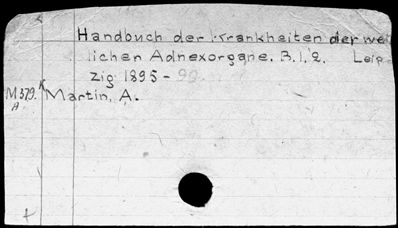 Handbuch der Krankheiten der wei
lichen Adnexorgane. B.1.2. Leip
zig 1895-99.
M379. Martin, A.
A